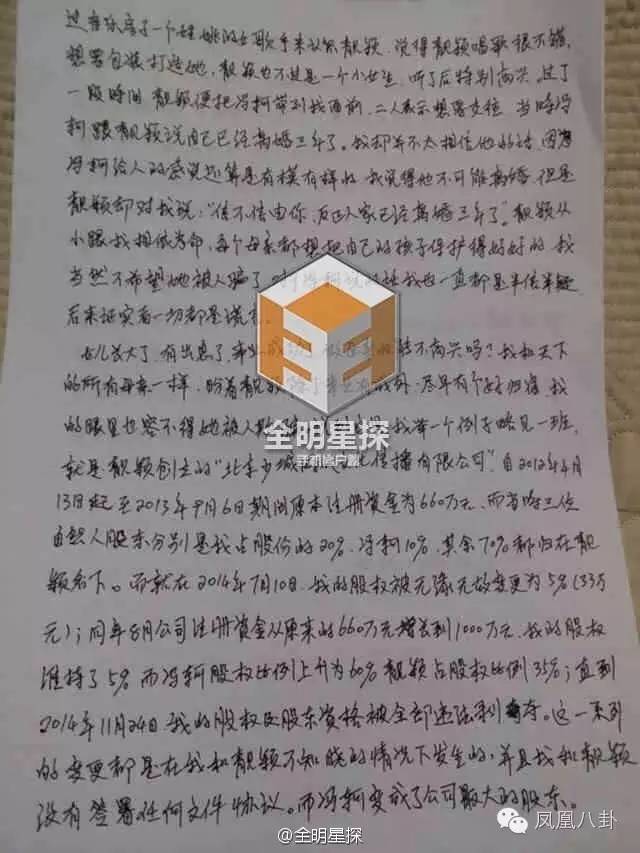 过音乐房了一个姓姚的女歌手来认识靓颖，说得靓颖唱歌很不错，
想要包装打造她，靓颖也不过是一个小女生，听了后特别高兴。过了
一段时间 靓颖便把冯柯带到我面前，二人表示想要交往，当时冯
柯跟靓颖说自己已经离婚三年了。我却并不太相信他的话，因为
冯柯给人的感觉还算是有模有样的，我觉得他不可能离婚，但是
靓颖却对我说："信不信由你，反正人家已经离婚三年了"。靓颖从
小跟我相依为命，每个母亲都想把自己的孩子保护得好好的，我
当然不希望她被人骗了，对冯柯说的话我也一直都是半信半疑，
后来证实看一切都是谎言。
女儿长大了，有出息了，事业成功了，做母亲的能不高兴吗？我和天下
的所有母亲一样，盼着靓颖 尽早有个好归宿，我
的眼里也容不得她被人欺 我举一个例子略见一班，
就是靓颖创立的"北京少城 文化传播有限公司"，自2012年4月
13日起至2013年9月6日期间原本注册资金为660万元，而当时三位
自然人股东分别是我占股份的20%，冯柯10%，其余70%都归在靓
颖名下。而就在2014年7月10日，我的股权被无缘无故变更为5%（33万
元）；同年8月公司注册资金从原来的660万元增长到1000万元，我的股权
维持了5% 而冯轲股权比例上升为60% 靓颖占股权比例35%；直到
2014年11月24日，我的股权及股东资格被全部违法剥夺。这一系列
的变更都是在我和靓颖不知晓的情况下发生的，并且我和靓颖
没有签署任何文件协议。而冯轲变成了公司最大的股东。
全明星探
手机客户端
@全明星探
凤凰八卦